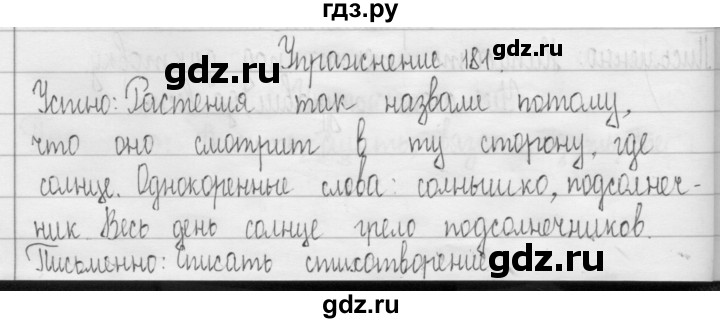 гдз.ру
Упражнение 181.
gdz.ru
Устно: Растения так назвали потому,
что оно смотрит в ту сторону, где
солнце. Однокоренные слова: солнышко, подсолнеч-
ник. Весь день солнце грело подсолнечников.
Письменно: списать стихотворение
gdz.ru
gdz.ru